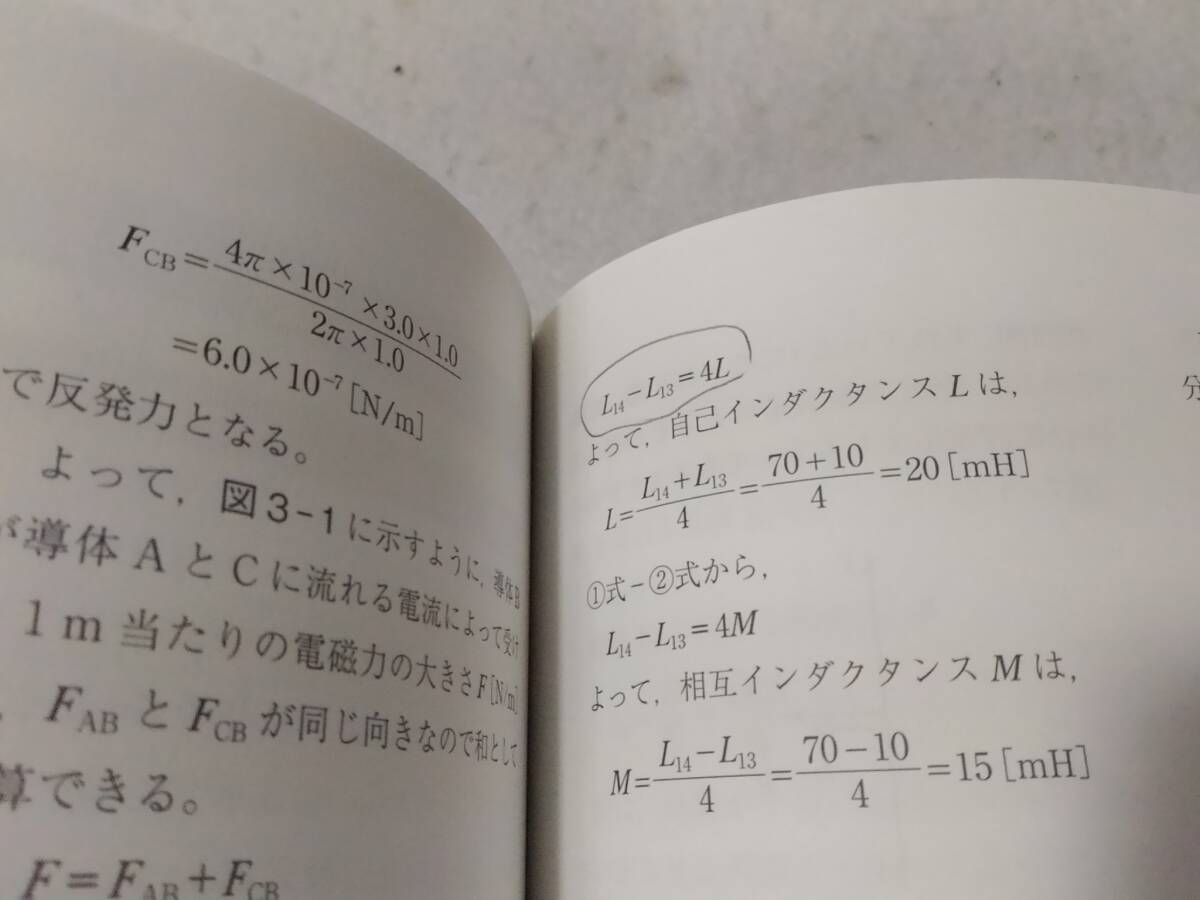 F_CB = 4π×10⁻⁷×3.0×1.0 / 2π×1.0
=6.0×10⁻⁷[N/m]
で反発力となる。
よって，図3-1に示すように，導体B
が導体AとCに流れる電流によって受け
1m当たりの電磁力の大きさF[N/m]
，F_ABとF_CBが同じ向きなので和として
算できる。
F=F_AB+F_CB
L₁₄−L₁₃=4L
よって，自己インダクタンスLは，
L= L₁₄+L₁₃ / 4 = 70+10 / 4 =20[mH]
①式−②式から，
L₁₄−L₁₃=4M
よって，相互インダクタンスMは，
M= L₁₄−L₁₃ / 4 = 70−10 / 4 =15[mH]
分